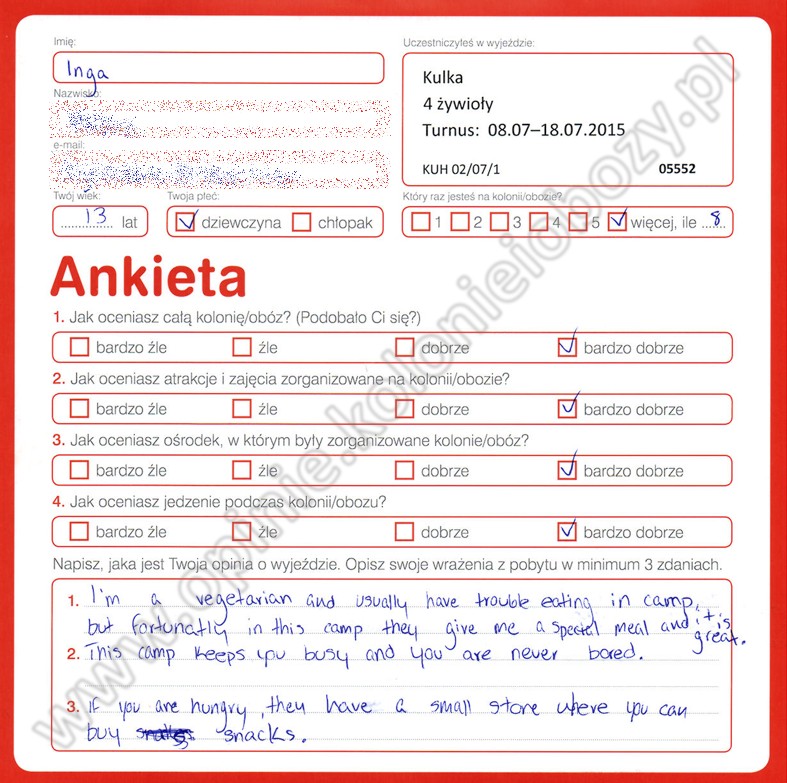 Imię:
Inga
Nazwisko:
e-mail:
Twój wiek:
13 lat
Twoja płeć:
dziewczyna chłopak
Uczestniczyłeś w wyjeździe:
Kulka
4 żywioły
Turnus: 08.07–18.07.2015
KUH 02/07/1 05552
Który raz jesteś na kolonii/obozie?
1 2 3 4 5 więcej, ile 8
Ankieta
1. Jak oceniasz całą kolonię/obóz? (Podobało Ci się?)
bardzo źle źle dobrze bardzo dobrze
2. Jak oceniasz atrakcje i zajęcia zorganizowane na kolonii/obozie?
bardzo źle źle dobrze bardzo dobrze
3. Jak oceniasz ośrodek, w którym były zorganizowane kolonie/obóz?
bardzo źle źle dobrze bardzo dobrze
4. Jak oceniasz jedzenie podczas kolonii/obozu?
bardzo źle źle dobrze bardzo dobrze
Napisz, jaka jest Twoja opinia o wyjeździe. Opisz swoje wrażenia z pobytu w minimum 3 zdaniach.
1. I'm a vegetarian and usually have trouble eating in camp,
but fortunatly in this camp they give me a special meal and it is
great.
2. This camp keeps you busy and you are never bored.
3. if you are hungry, they have a small store where you can
buy snacks.
www.opinie.kolonieiobozy.pl